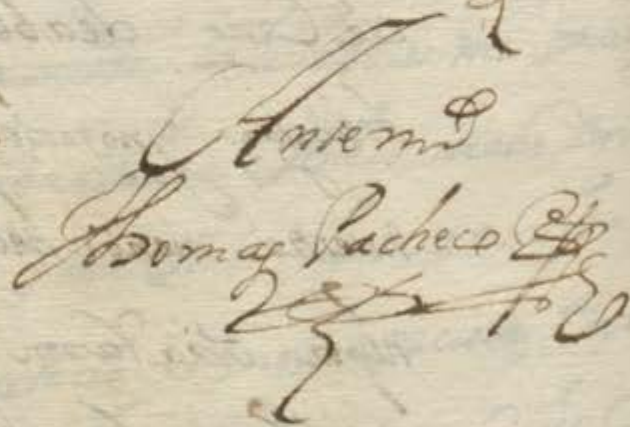 Antemi
Thomas Pacheco